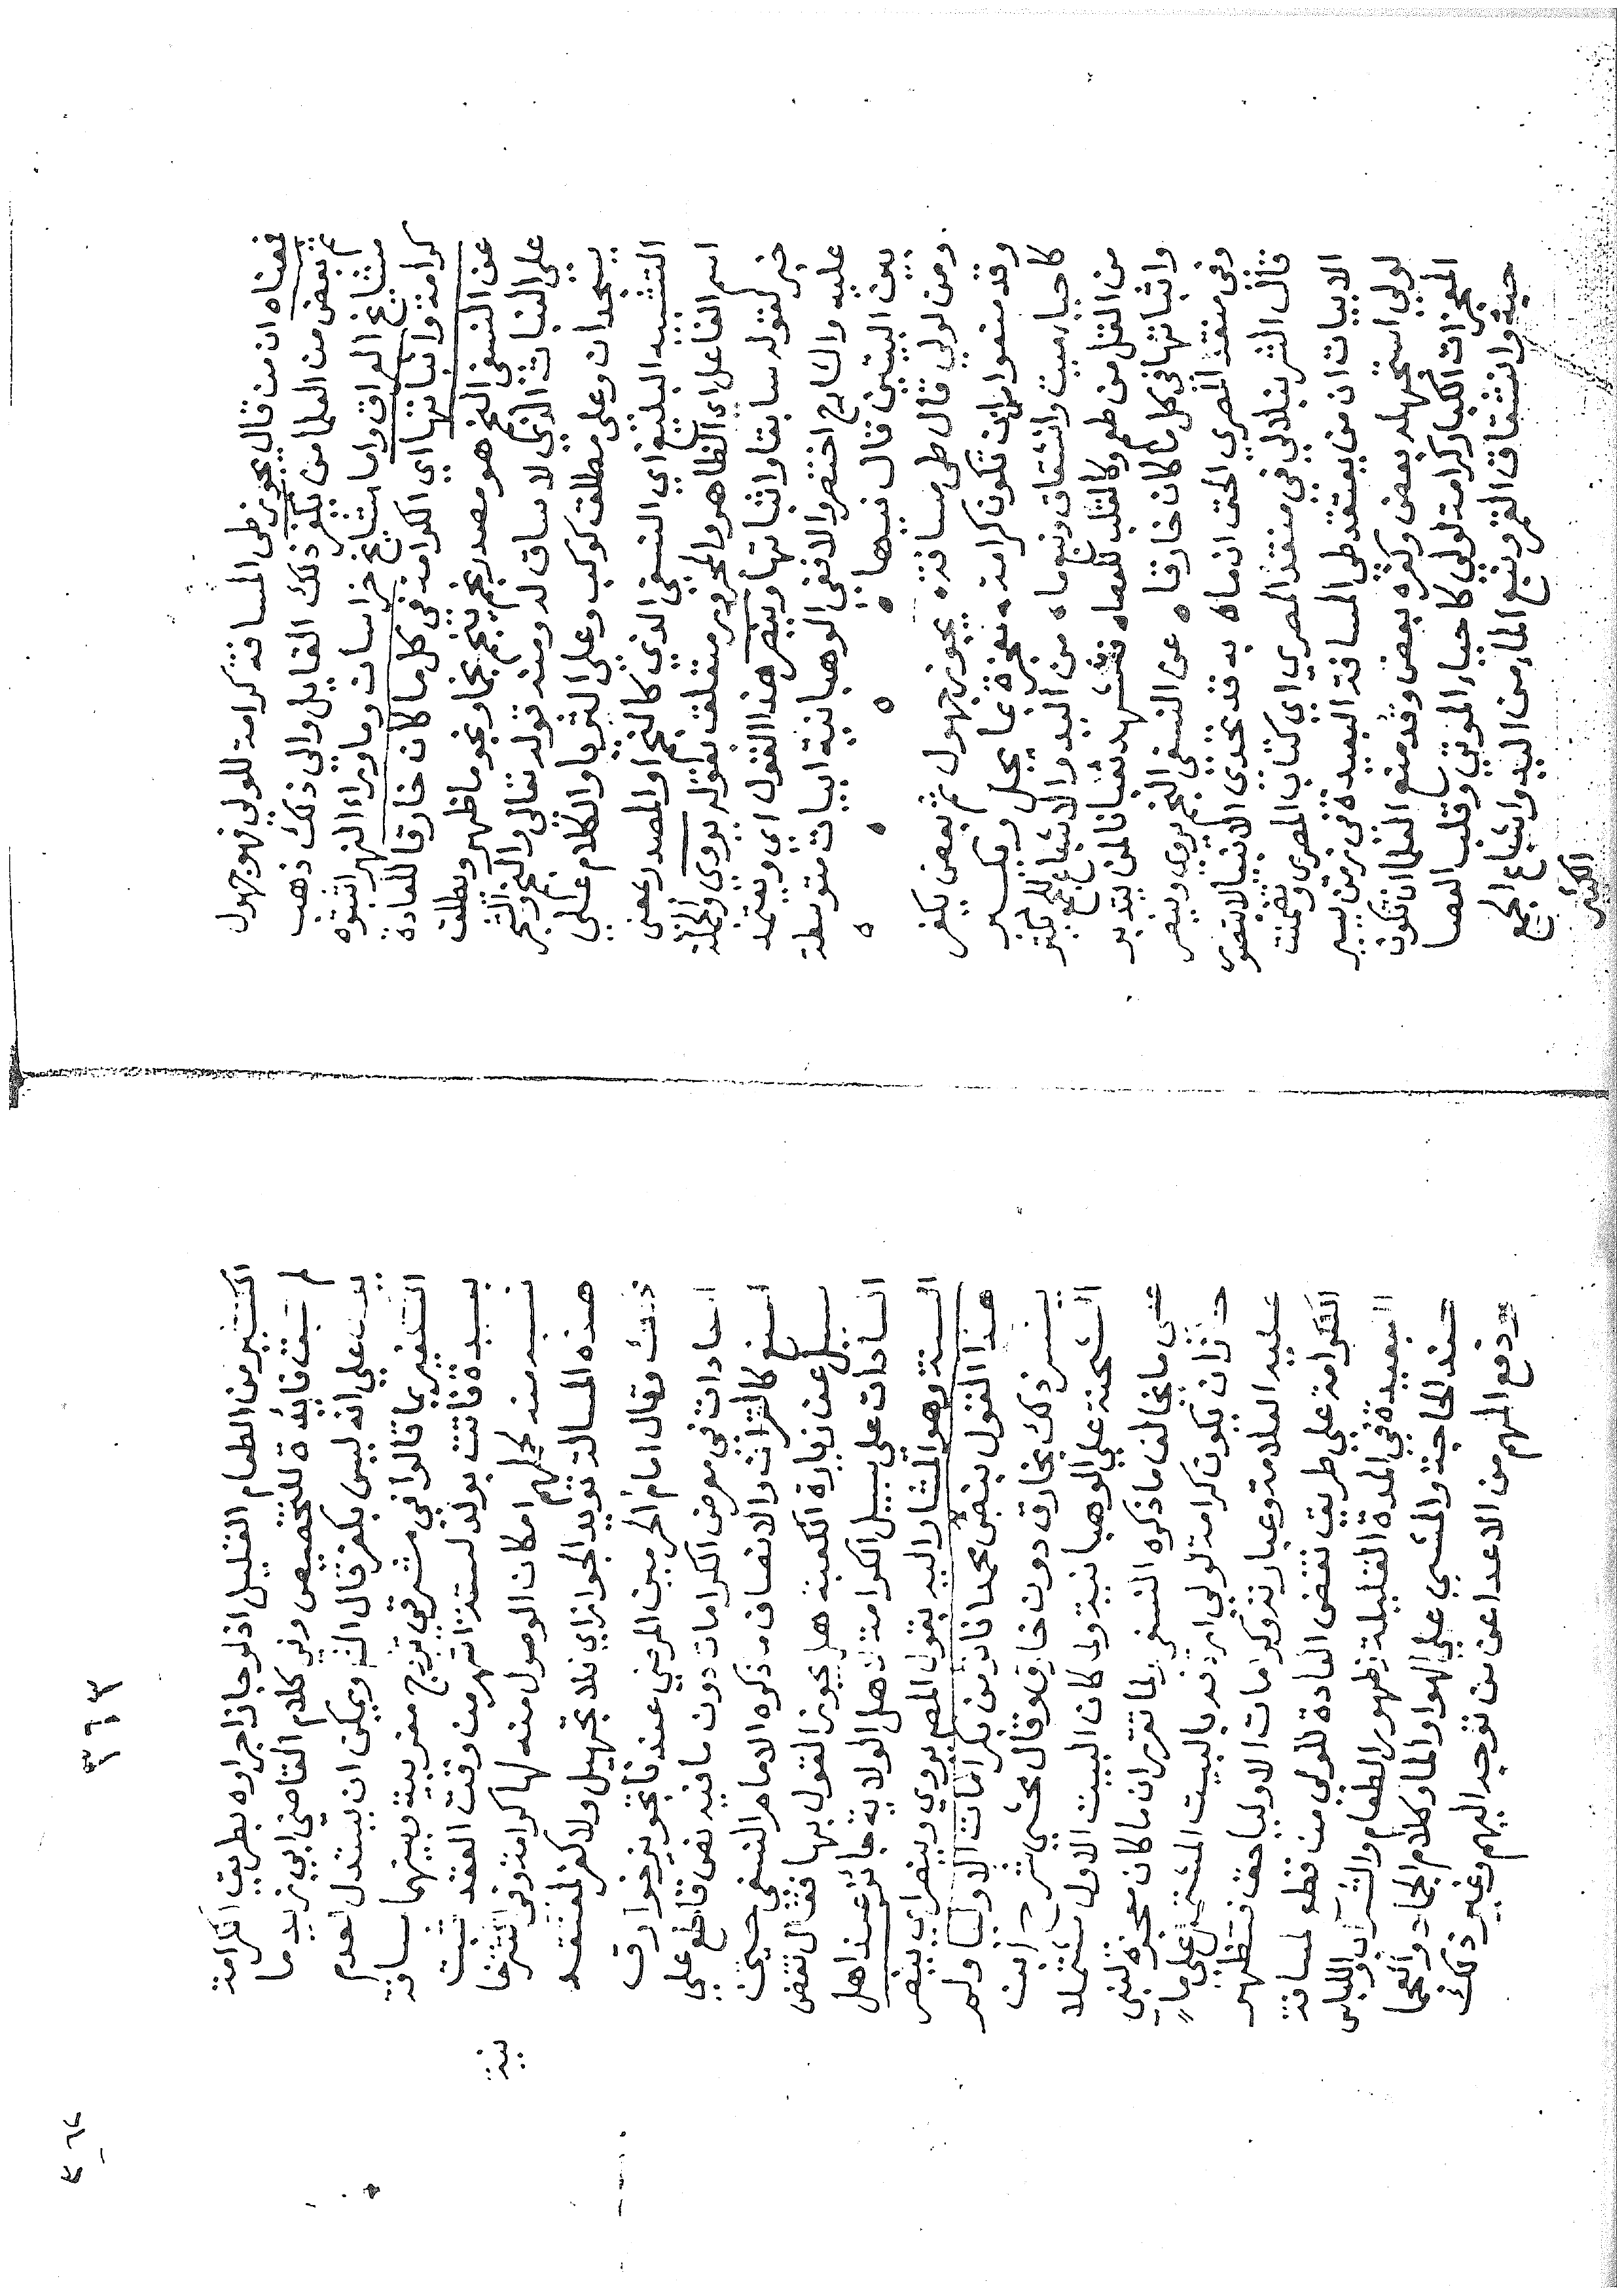 فمعناه ان من قال يجوز طى المسافة كرامة للولي فهو جهول
ثم بعض من العلما من يكفر ذلك القايل والى ذلك ذهب
مشايخ العراق واما مشايخ خراسان وما وراء النهر اثبتوه
كرامة واثباتها اي الكرامة في كل ما كان خارقا للعادة
عن النسفي النجم هو مصدر نجم ينجم نجما ونجوما ظهر ويطلق
على النبات الذي لا ساق له ومنه قوله تعالى والنجم والشجر
يسجدان وعلى مطلق كوكب وعلي الثريا والكلام علي
التشبيه البليغ اي النسفي الذي كالنجم او المصدر بمعنى
اسم الفاعل اي الظاهر والمجرور متعلق بقوله يروي والجملة
خبر لقوله سابقا واثباتها وينصر هذا القول اي ويعتمد
عليه والشارح اختصر والا ففي الوهبانية ابيات متوسطة
بين البيتين قال فيها ه ه ه ه
ومن لولي قال طى مسافة ه يجوز جهول ثم بعض يكفر
وقد منعوا من ان تكون كرامة ه بمعجزة مما يجل ويكبر
كاحياء ميت وانشقاق ونبع ما ه من اليد والاشباع للجمع يكثر
من القل من طعم وكالقلب للعصا ه فتشهد ثعبانا لمن يتدبر
واثباتها في كل ما كان خارقا ه عن النسفي النجم يروي وينصر
وفي منتقد المصري الحق انه ماه به قد تحدي الانبيا لا تتصور
قال الشرنبلالي في منتقد المصري اي كتاب المصري وتضمنت
الابيات ان من يعتقد طى المسافة البعيدة في زمن يسير
لولي استجهله بعض وكفره بعض وقد منع العلما ان تكون
المعجزات الكبار كرامة لولي كاحياء الموتي وقلب العصا
حية وانشقاق القمر ونبع الماء من اليد واشباع الجمع
الكثير
٣٦٣
الكثير من الطعام القليل اذ لو جاز اجراوه بطريق الكرامة
لم تبق فايدة للتخصيص وفي كلام القاضي ابي زيد ما
يدل علي انه ليس بكفر قال الش ويمكن ان يستدل لعدم
التكفير بما قالوا في مشرقي تزوج مغربية وبينهما مسافة
بعيدة فاتت بولد لستة اشهر من وقت العقد ثبت
نسبه منه لجعلهم امكان الوصول منه لها كرامة وفي اشتراط
نية
هذه المسالة تويد الجواز اي فلا تجهيل ولا كفر لمعتقد
ذلك وقال امام الحرمين المرضي عندنا تجويز خوارق
العادات في معرض الكرامات دون ما فيه نص قاطع علي
المنع كالتراث والانصاف ما ذكره الامام النسفي حيث
سيل عن زيارة الكعبة هل يجوز القول بها فقال نقض
العادات علي سبيل الكرامة لاهل الولاية جائز عند اهل
السنة وهو المشار اليه بقول المص يروي وينصر اي ينصر
هذا القول بنص محمد انا نومن بكرامات الاوليا ولم
يفسر ذلك بخارق دون خارق وقال محشي ش ابن
الشحنة علي الوهبانية ولما كان البيت الاول مشتملا
على ما يخالف ما ذكره النسفي لما تقرر ان ما كان معجزة لنبي
جاز ان يكون كرامة لولي اردفه بالبيت المشتمل علي ما
عليه العلامة وعبارته وكرامات الاوليا حق فتظهر
الكرامة علي طريق نقض العادة للولي من قطع المسافة
البعيدة في المدة القليلة وظهور الطعام والشراب واللباس
عند الحاجة والمشي علي الهوا والماء وكلام الجماد والعجما
ودفع المهم من الاعدا عن من توجه اليهم وغير ذلك